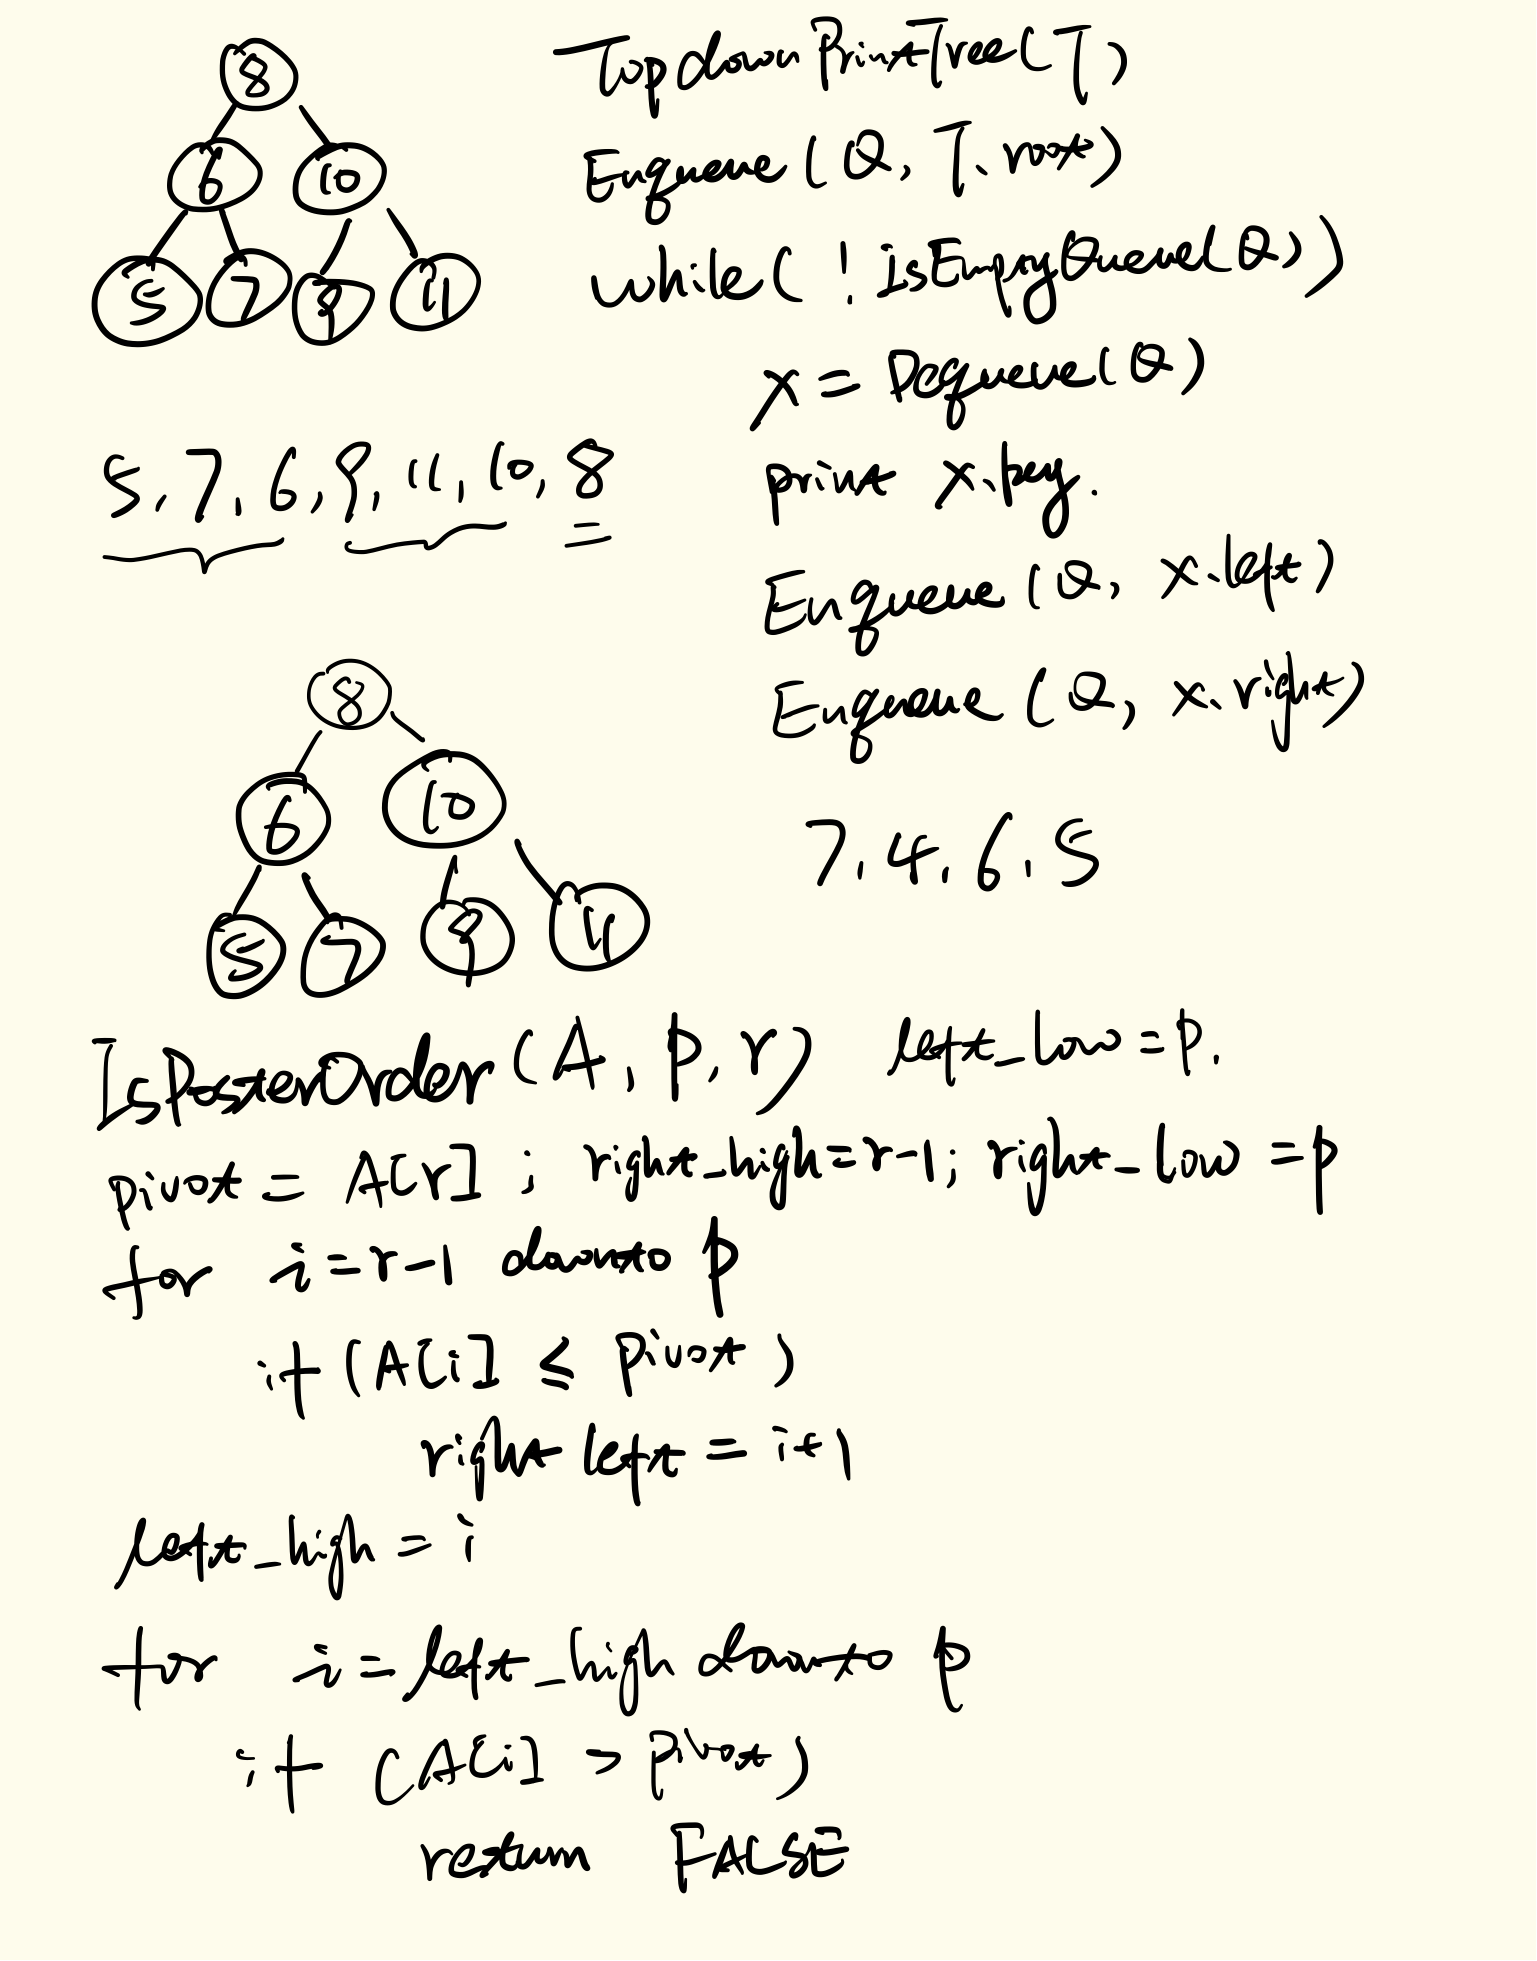 8
6 10
5 7 9 11
TopdownPrintTree(T)
Enqueue(Q, T.root)
while(!IsEmpyQueue(Q))
x = Dequeue(Q)
print x.key.
Enqueue(Q, x.left)
Enqueue(Q, x.right)
5, 7, 6, 9, 11, 10, 8
8
6 10
5 7 9 11
7, 4, 6, 5
IsPosterOrder(A, p, r) left_low = p.
pivot = A[r]; right_high=r-1; right_low = p
for i=r-1 downto p
if (A[i] ≤ pivot)
right left = i+1
left_high = i
for i=left_high downto p
if (A[i] > pivot)
return FALSE